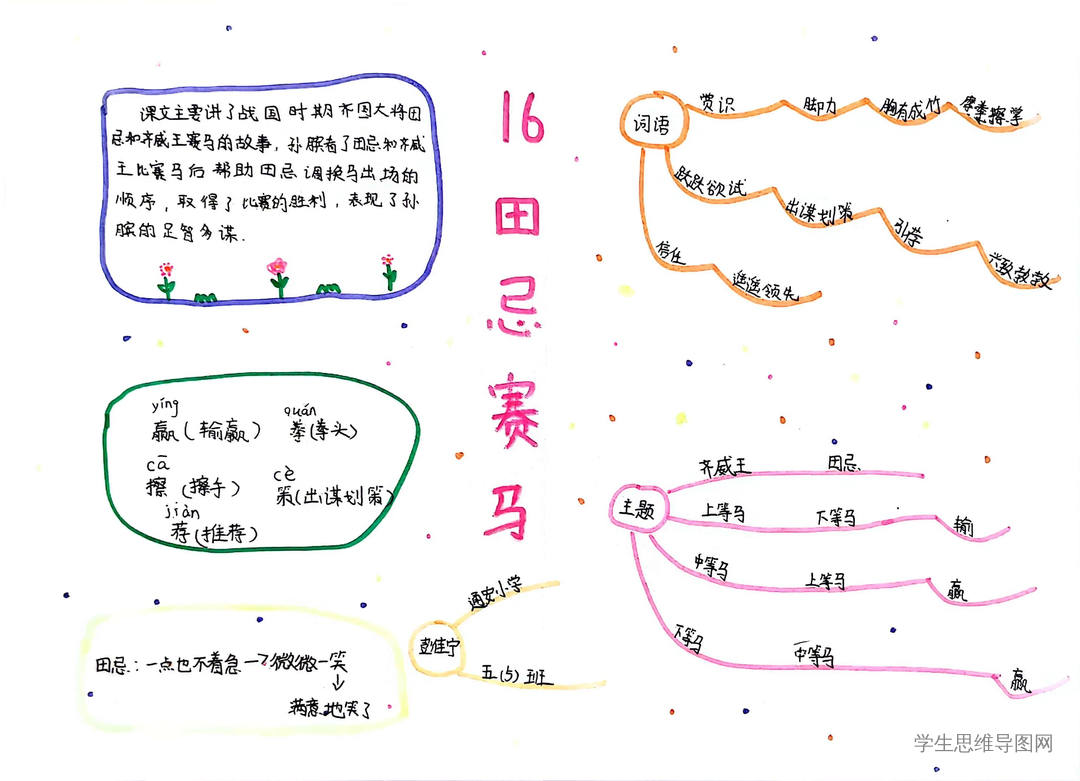 16 田忌赛马
课文主要讲了战国时期齐国大将田
忌和齐威王赛马的故事，孙膑看了田忌和齐威
王比赛马后帮助田忌调换马出场的
顺序，取得了比赛的胜利，表现了孙
膑的足智多谋.
yíng quán
赢(输赢) 拳(拳头)
cā cè
擦(擦手) 策(出谋划策)
jiàn
荐(推荐)
田忌：一点也不着急→微微一笑
↓
满意地笑了
彭佳宁
通安小学
五(5)班
词语
赏识 脚力 胸有成竹 摩拳擦掌
跃跃欲试 出谋划策 引荐
信任 遥遥领先
主题
齐威王 田忌
上等马 下等马 输
中等马 上等马 赢
下等马 中等马 赢
学生思维导图网